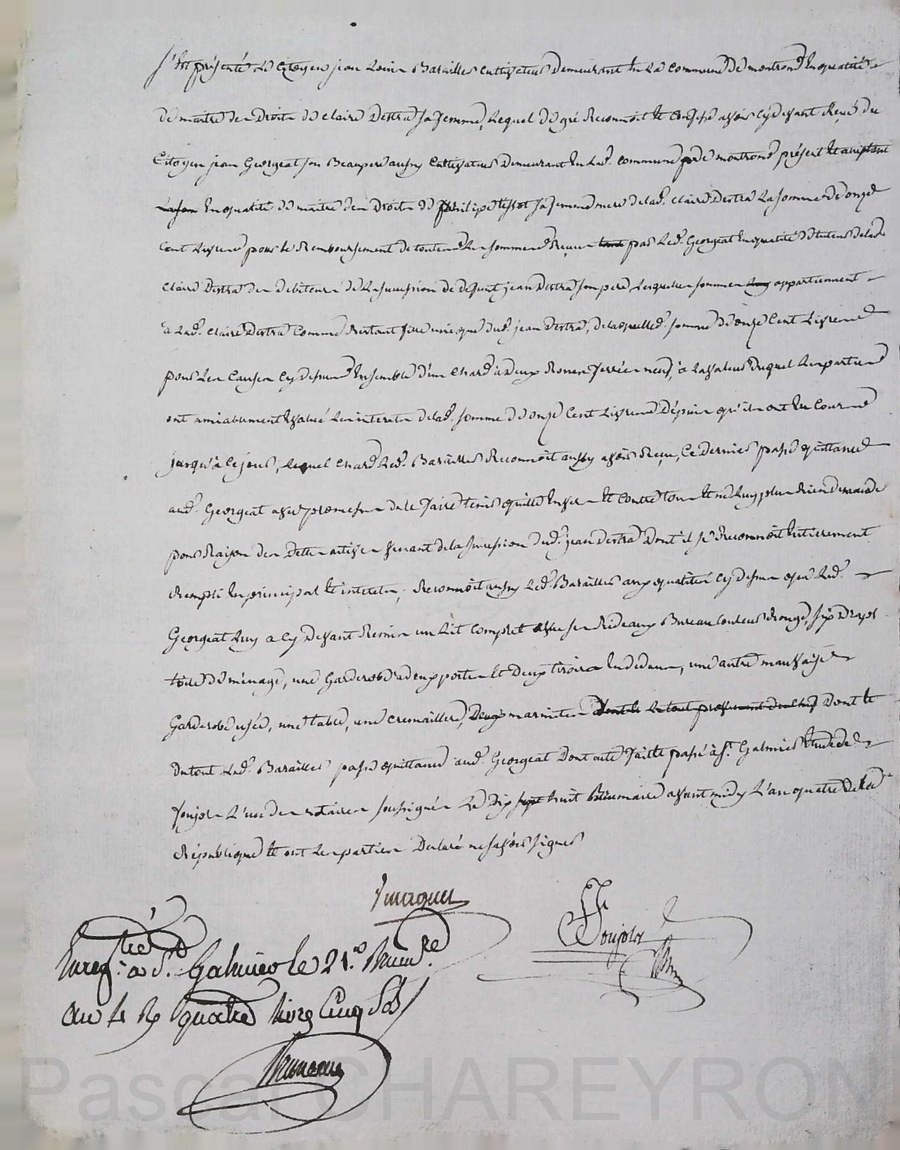 S'est présenté le Citoyen jean Louis Barailler cultivateur demeurant en la commune de montrond En qualité
de maitre des Droits de claire Destra sa femme, Lequel de gré Reconnoit Et Confesse avoir cy devant Reçu du
Citoyen jean Georgeat son Beaupere aussy cultivateur demeurant en lad. commune de montrond présent Et acceptant
En qualité de maitre des Droits de philipe tissot sa femme mere de lad. claire Destra La somme de onze
cent Livres pour le Remboursement de toutes les sommes Reçues par led. Georgeat En qualité de tuteur de lad.
claire Destra des debiteurs de La succession de defunt jean Destra son pere Lesquelles sommes appartiennent
a Lad. claire Destra Comme Restant fille unique dud. jean Destra, de laquelle somme de onze Cent Livres
pour Les Causes cy dessus Ensemble d'un Chard à deux Roues ferrées neuf, à la valeur duquel Les parties
ont amiablement Evalué Les interets de lad. somme de onze Cent Livres Depuis qu'ils ont Eu Cours
jusqu'à Ce jour, Lequel chard led. Barailler Reconnoit aussy avoir Reçu, Ce dernier passe quittance
aud. Georgeat avec promesse de le faire tenir quitte Envers Et Contre tous Et ne luy plus Rien demander
pour Raison des Dettes actives venant de la succession dud. jean Destra Dont il se Reconnoit Entierement
Rempli En principal Et interets, Reconnoit aussy led. Barailler aux qualités cy dessus que led.
Georgeat Luy a cy devant Remis un Lit Complet avec ses Rideaux Bureau Couleur Rouge, six Draps
toile de ménage, une Garderobe a deux portes et Deux tiroirs En dedans, une autre mauvaise
Garderobe usée, une table, une cremaillere, Deux marmites Dont le le tout provenant Dont Et
du tout Led. Barailler passe quittance aud. Georgeat Dont acte fait Et passé à St. Galmier Etude de
Joujoly L'un des notaires soussignés Le Dix huit Brumaire avant midy L'an quatre de la
République Et ont Les parties Declaré ne savoir signer
Joujoly
Enregtré à St. Galmier le 21. Brumre.
an 4 R quatre livres Cinq Sols